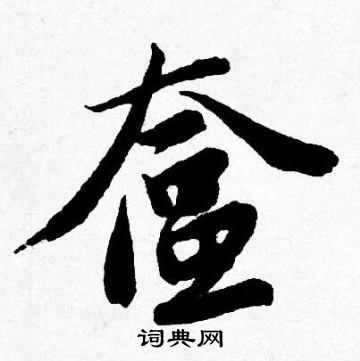 奩
词典网